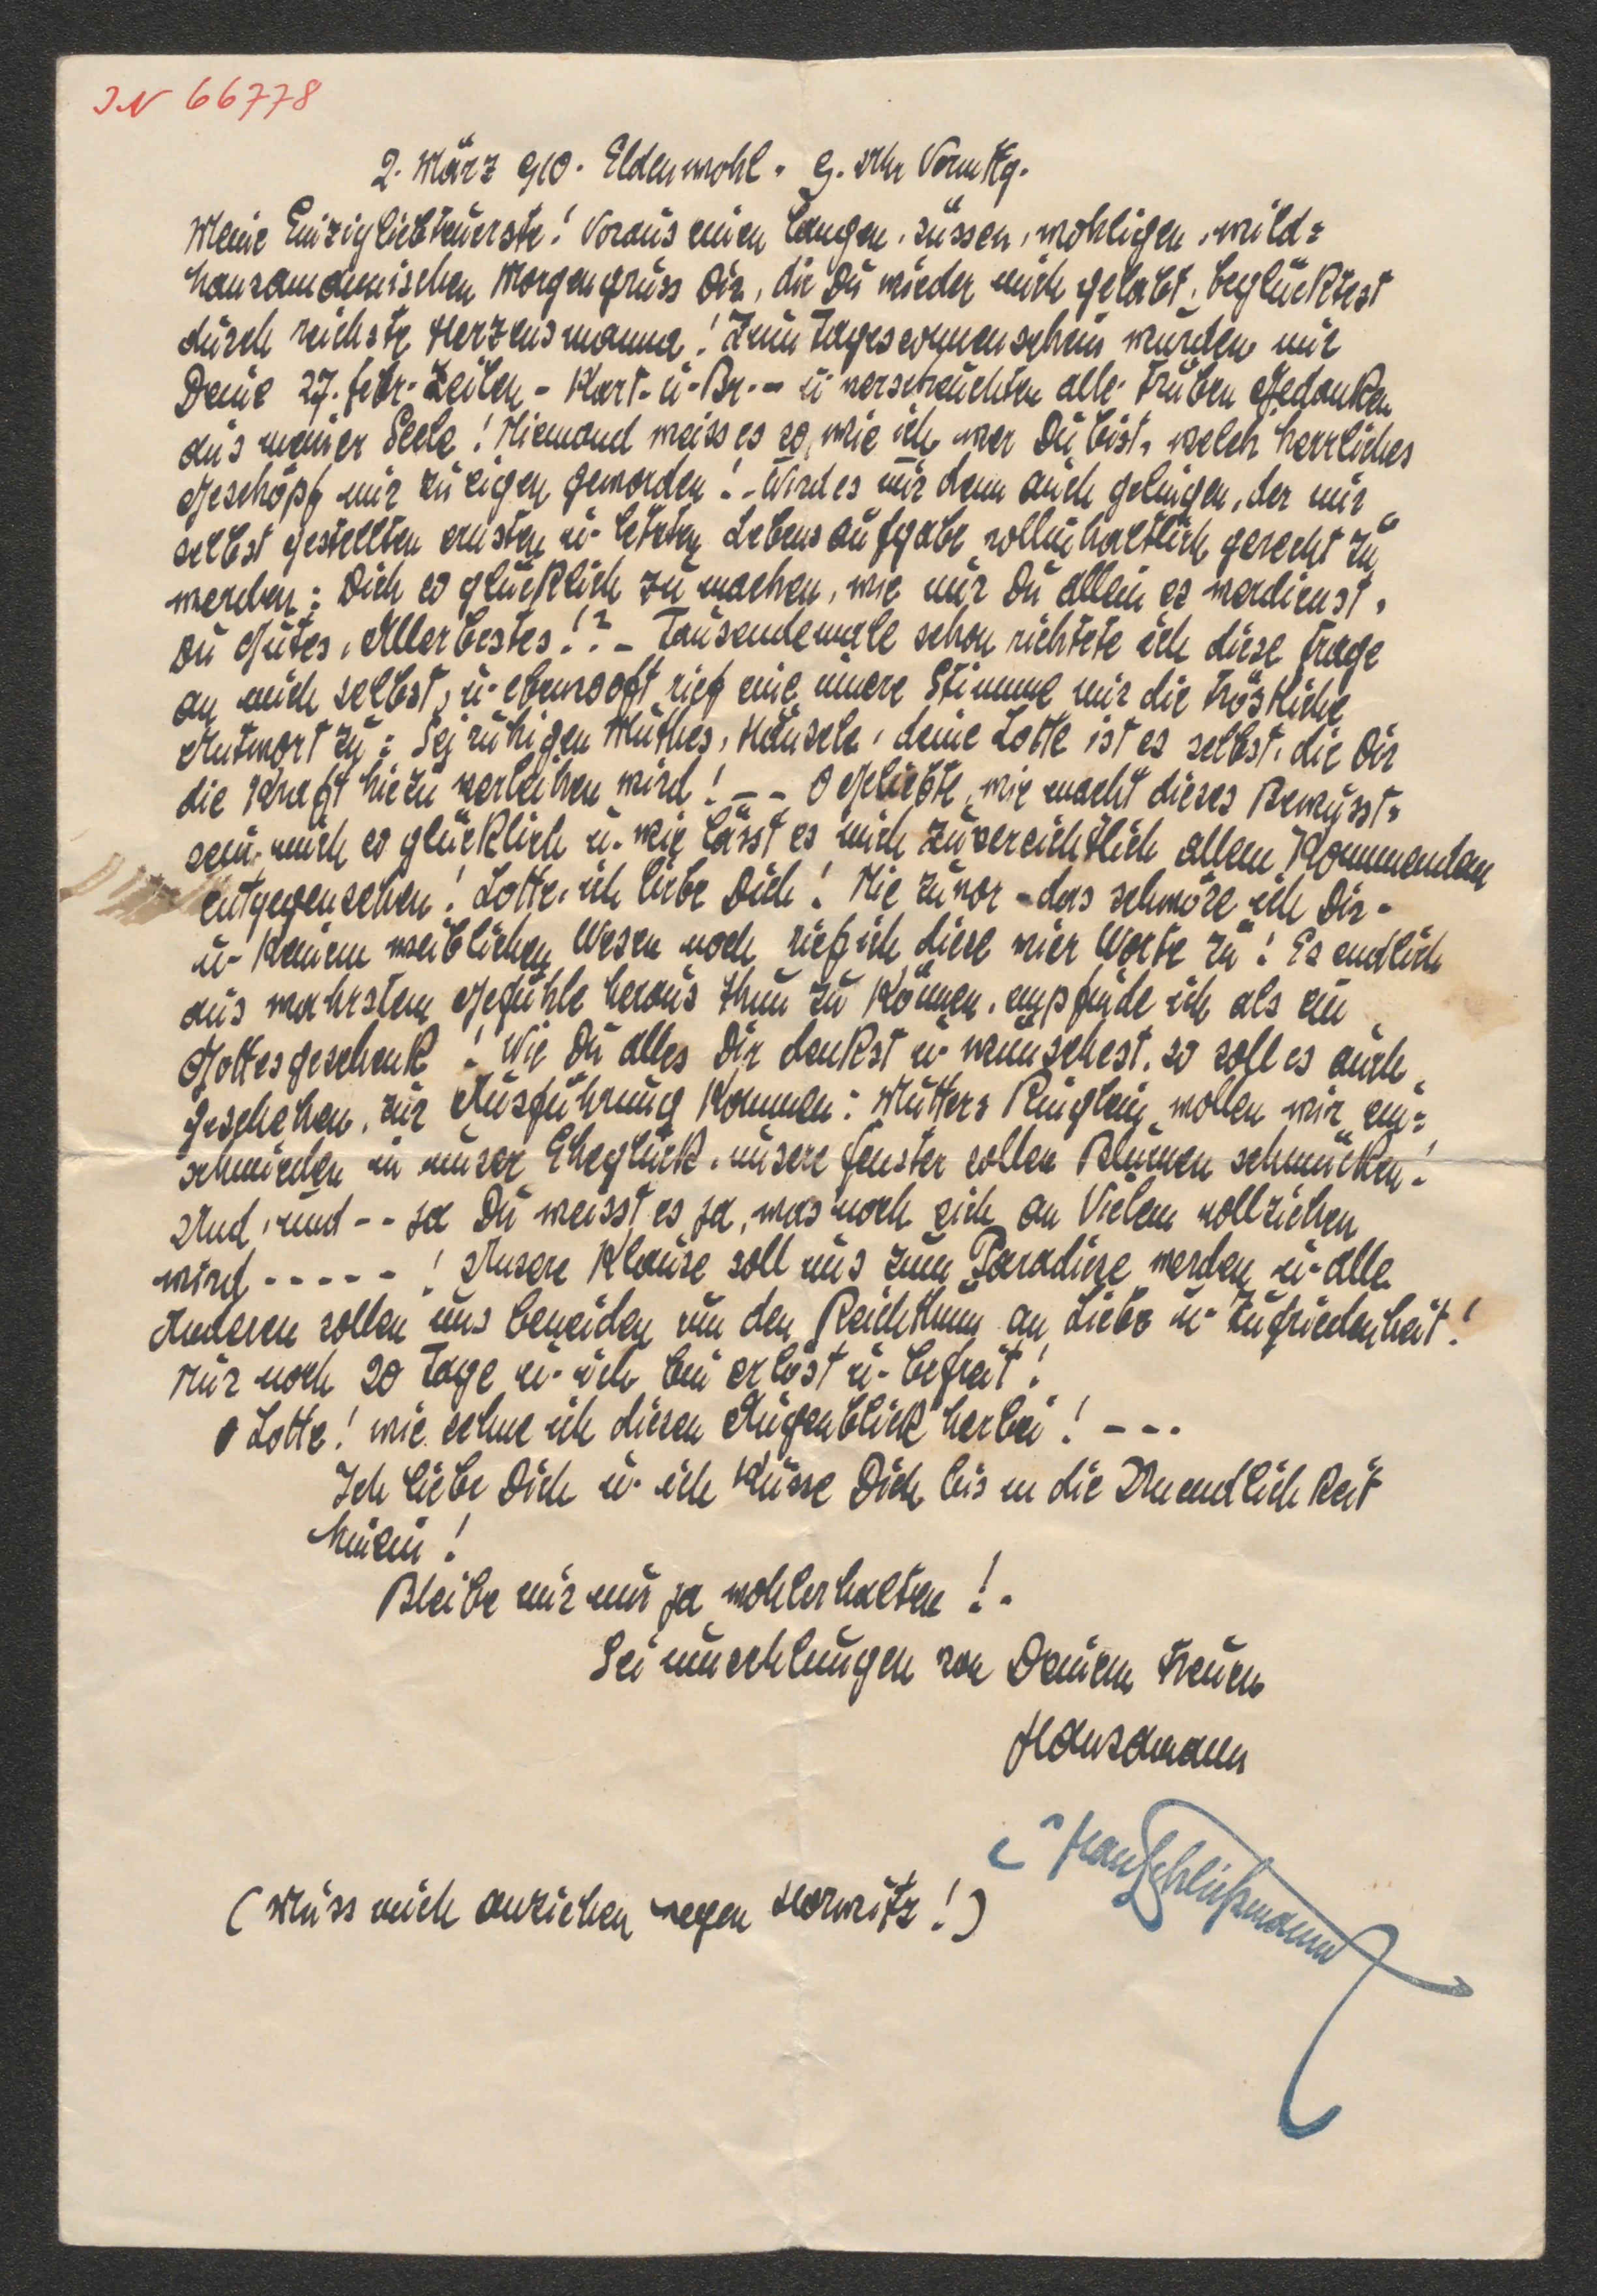 IN 66778
2. März 910. Eldenwohl. 9. Uhr Vormttg.
Meine Einzigliebteuerste! Voraus einen langen, süssen, wohligen, wild=
hansamannischen Morgengruss Dir, die Du wieder mich gelabt, beglücktest
durch reichste Herzensmanna! Zum Tagessonnenschein wurden mir
Deine 27. Febr.-Zeilen - Kart.- u- Br.- - u- verscheuchten alle trüben Gedanken
aus meiner Seele! Niemand weiss es so, wie ich wer Du bist, welch herrliches
Geschöpf mir zu eigen geworden! - Wird es mir denn auch gelingen, der mir
selbst gestellten ernsten u- letzten Lebensaufgabe vollinhaltlich gerecht zu
werden: Dich so glücklich zu machen, wie nur Du allein es verdienst,
Du Gutes, Allerbestes!? - Tausendemale schon richtete ich diese Frage
an mich selbst, u- ebensooft rief eine innere Stimme mir die tröstliche
Antwort zu: Sei ruhigen Muthes, Hansele, deine Lotte ist es selbst, die Dir
die Kraft hiezu verleihen wird! - - O Geliebte, wie macht dieses Bewusst=
sein mich so glücklich u- wie lässt es mich zuversichtlich allem Kommenden
entgegensehen! Lotte, ich liebe Dich! Nie zuvor - das schwöre ich Dir -
u- keinem weiblichen Wesen noch rief ich diese vier Worte zu! Es endlich
aus wahrstem Gefühle heraus thun zu können, empfinde ich als ein
Gottesgeschenk! Wie Du alles Dir denkst u- wünschest, so soll es auch
geschehen, zur Ausführung kommen: Mutters Ringlein wollen wir ein=
schmieden in unser Eheglück, unsere Fenster sollen Blumen schmücken!
Und, und - - ja Du weisst es ja, was noch sich an Vielem vollziehen
wird - - - - - ! Unsere Klause soll uns zum Paradiese werden u- alle
Anderen sollen uns beneiden um den Reichthum an Liebe u- Zufriedenheit!
Nur noch 20 Tage u- ich bin erlöst u- befreit!
O Lotte! wie sehne ich diesen Augenblick herbei! - - -
Ich liebe Dich u- ich küsse Dich bis in die Unendlichkeit
hinein!
Bleibe mir nur ja wohlerhalten! -
Sei umschlungen von Deinem treuen
Hansamann
Hans Schließmann
(Muss mich anziehen wegen Horwitz!)